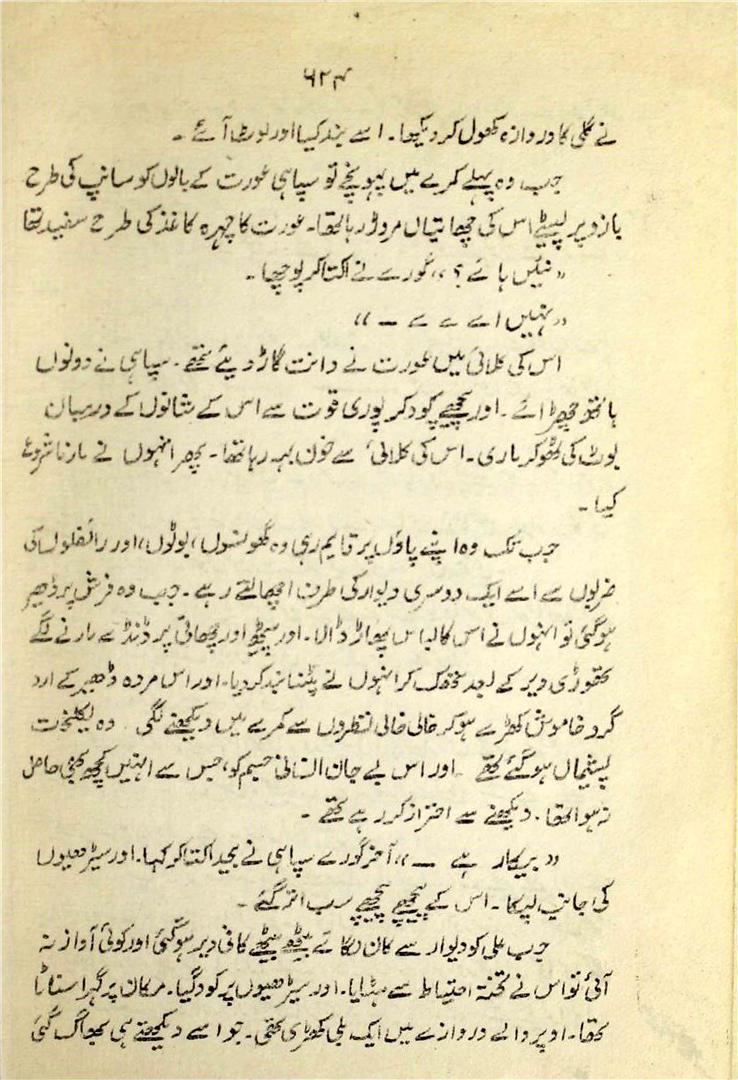 ۶۲۴
نے گلی کا دروازہ کھول کر دیکھا۔ اسے بند کیا اور لوٹ آئے ۔
جب وہ پہلے کمرے میں پہونچے تو سپاہی عورت کے بالوں کو سانپ کی طرح
بازو پر لپیٹے اس کی چھاتیاں مروڑ رہا تھا۔ عورت کا چہرہ کاغذ کی طرح سفید تھا
«نیٔں ہائے؟» گورے نے اکتا کر پوچھا۔
«نہیں اے ے ے ـــ»
اس کی کلائی میں عورت نے دانت گاڑ دیئے تھے۔ سپاہی نے دونوں
ہاتھ چھڑائے۔ اور پیچھے کود کر پوری قوت سے اس کے شانوں کے درمیان
بوٹ کی ٹھوکر ماری۔ اس کی کلائی سے خون بہہ رہا تھا۔ پھر انہوں نے مارنا شروع
کیا۔
جب تک وہ اپنے پاؤں پر قایم رہی وہ گھونسوں، بوٹوں، اور رائفلوں کی
ضربوں سے اسے ایک دوسری دیوار کی طرف اچھالتے رہے۔ جب وہ فرش پر ڈھیر
ہو گئی تو انہوں نے اس کا لباس پھاڑ ڈالا۔ اور پیٹھ اور چھاتی پر ڈنڈے مارنے لگے
تھوڑی دیر کے بعد تھک کر انہوں نے پٹنا بند کر دیا۔ اور اس مردہ ڈھیر کے ارد
گرد خاموش کھڑے ہو کر خالی خالی نظروں سے کمرے میں دیکھنے لگے۔ وہ یکلخت
پشیماں ہو گئے تھے۔ اور اس بے جان انسانی جسم کو، جس سے انہیں کچھ بھی حاصل
نہ ہوا تھا۔ دیکھنے سے احتراز کر رہے تھے۔
«بیکار ہے ـــ» آخر گورے سپاہی نے بیحد اکتا کر کہا۔ اور سیڑھیوں
کی جانب لپکا۔ اس کے پیچھے پیچھے سب اتر گئے۔
جب علی کو دیوار سے کان لگائے بیٹھے بیٹھے کافی دیر ہو گئی اور کوئی آواز نہ
آئی تو اس نے تختہ احتیاط سے ہٹایا۔ اور سیڑھیوں پر کود گیا۔ مکان پر گہرا سناٹا
تھا۔ اوپر والے دروازے میں ایک بلی کھڑی تھی۔ جو اسے دیکھتے ہی بھاگ گئی